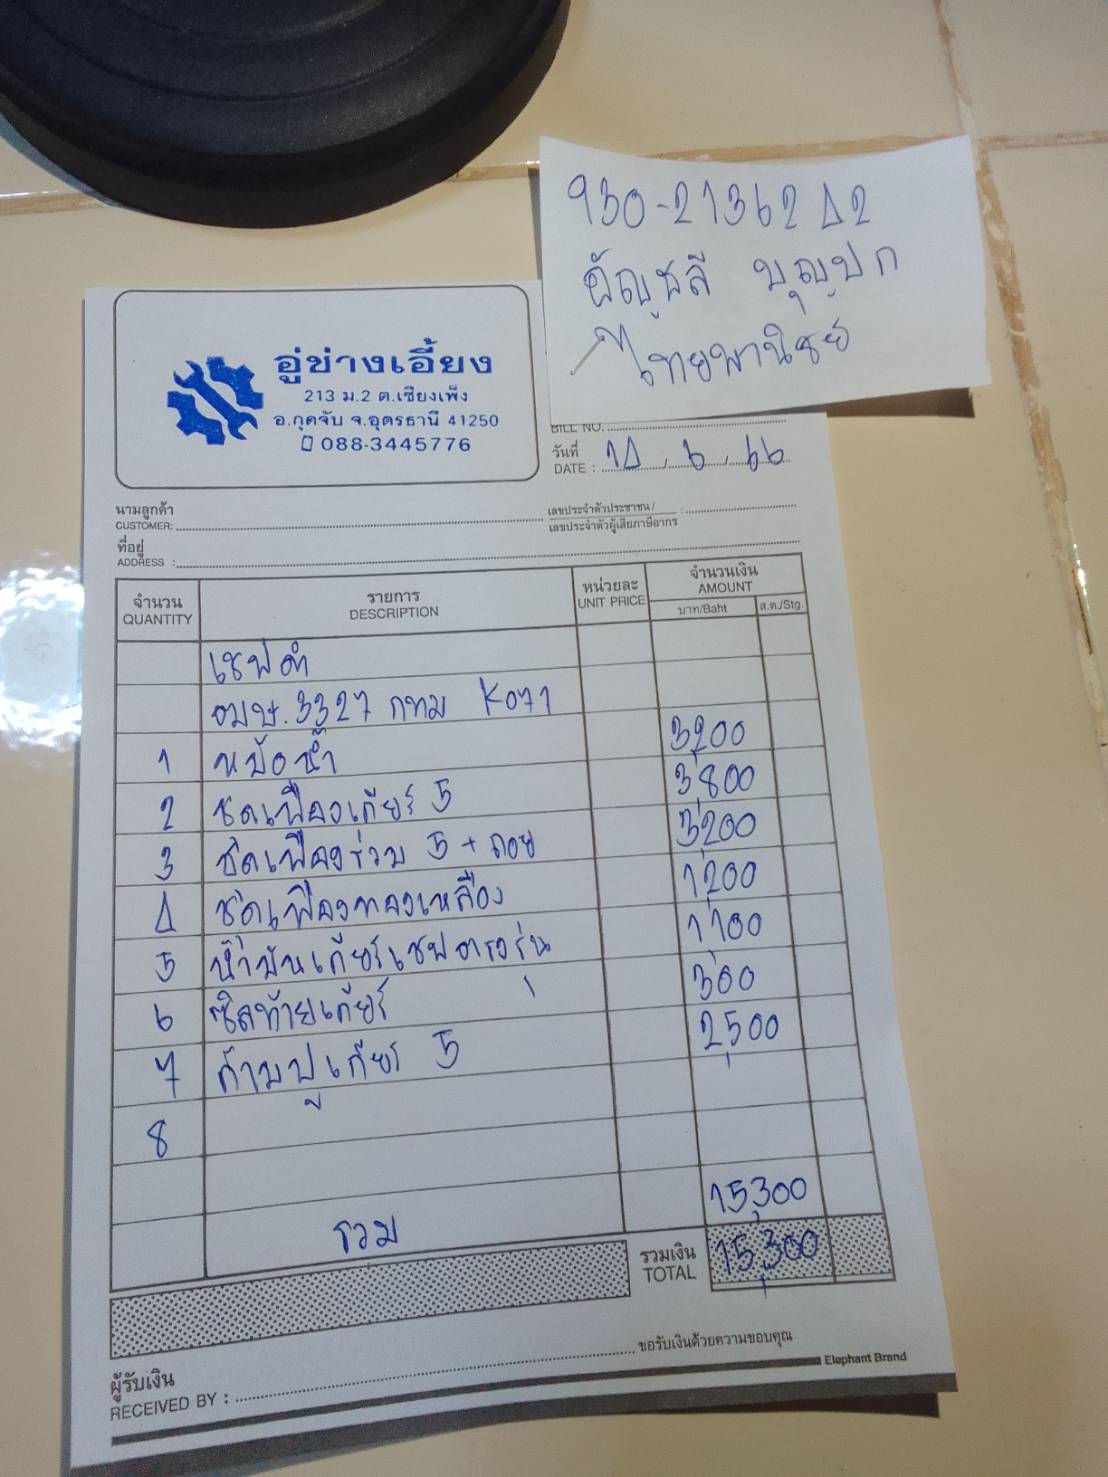 930-2136242
อัญชลี บุญปก
ไทยพานิชย์
อู่ช่างเอี้ยง
213 ม.2 ต.เชียงเพ็ง
อ.กุดจับ จ.อุดรธานี 41250
088-3445776
BILL NO.
วันที่
DATE : 14 / 6 / 66
นามลูกค้า
CUSTOMER:
เลขประจำตัวประชาชน /
เลขประจำตัวผู้เสียภาษีอากร :
ที่อยู่
ADDRESS :
จำนวน รายการ หน่วยละ จำนวนเงิน
QUANTITY DESCRIPTION UNIT PRICE AMOUNT
บาท/Baht ส.ต./Stg.
เชฟดำ
อมษ.3327 กทม K071
1 หม้อน้ำ 3,200
2 ชุดเฟืองเกียร์ 5 3,800
3 ชุดเฟืองร่วม 5 + ถอย 3,200
4 ชุดเฟืองทองเหลือง 1,200
5 น้ำมันเกียร์เชฟตรงรุ่น 1,100
6 ซิลท้ายเกียร์ 300
7 ก้ามปูเกียร์ 5 2,500
8
15,300
รวม
รวมเงิน
TOTAL 15,300
ขอรับเงินด้วยความขอบคุณ
Elephant Brand
ผู้รับเงิน
RECEIVED BY :